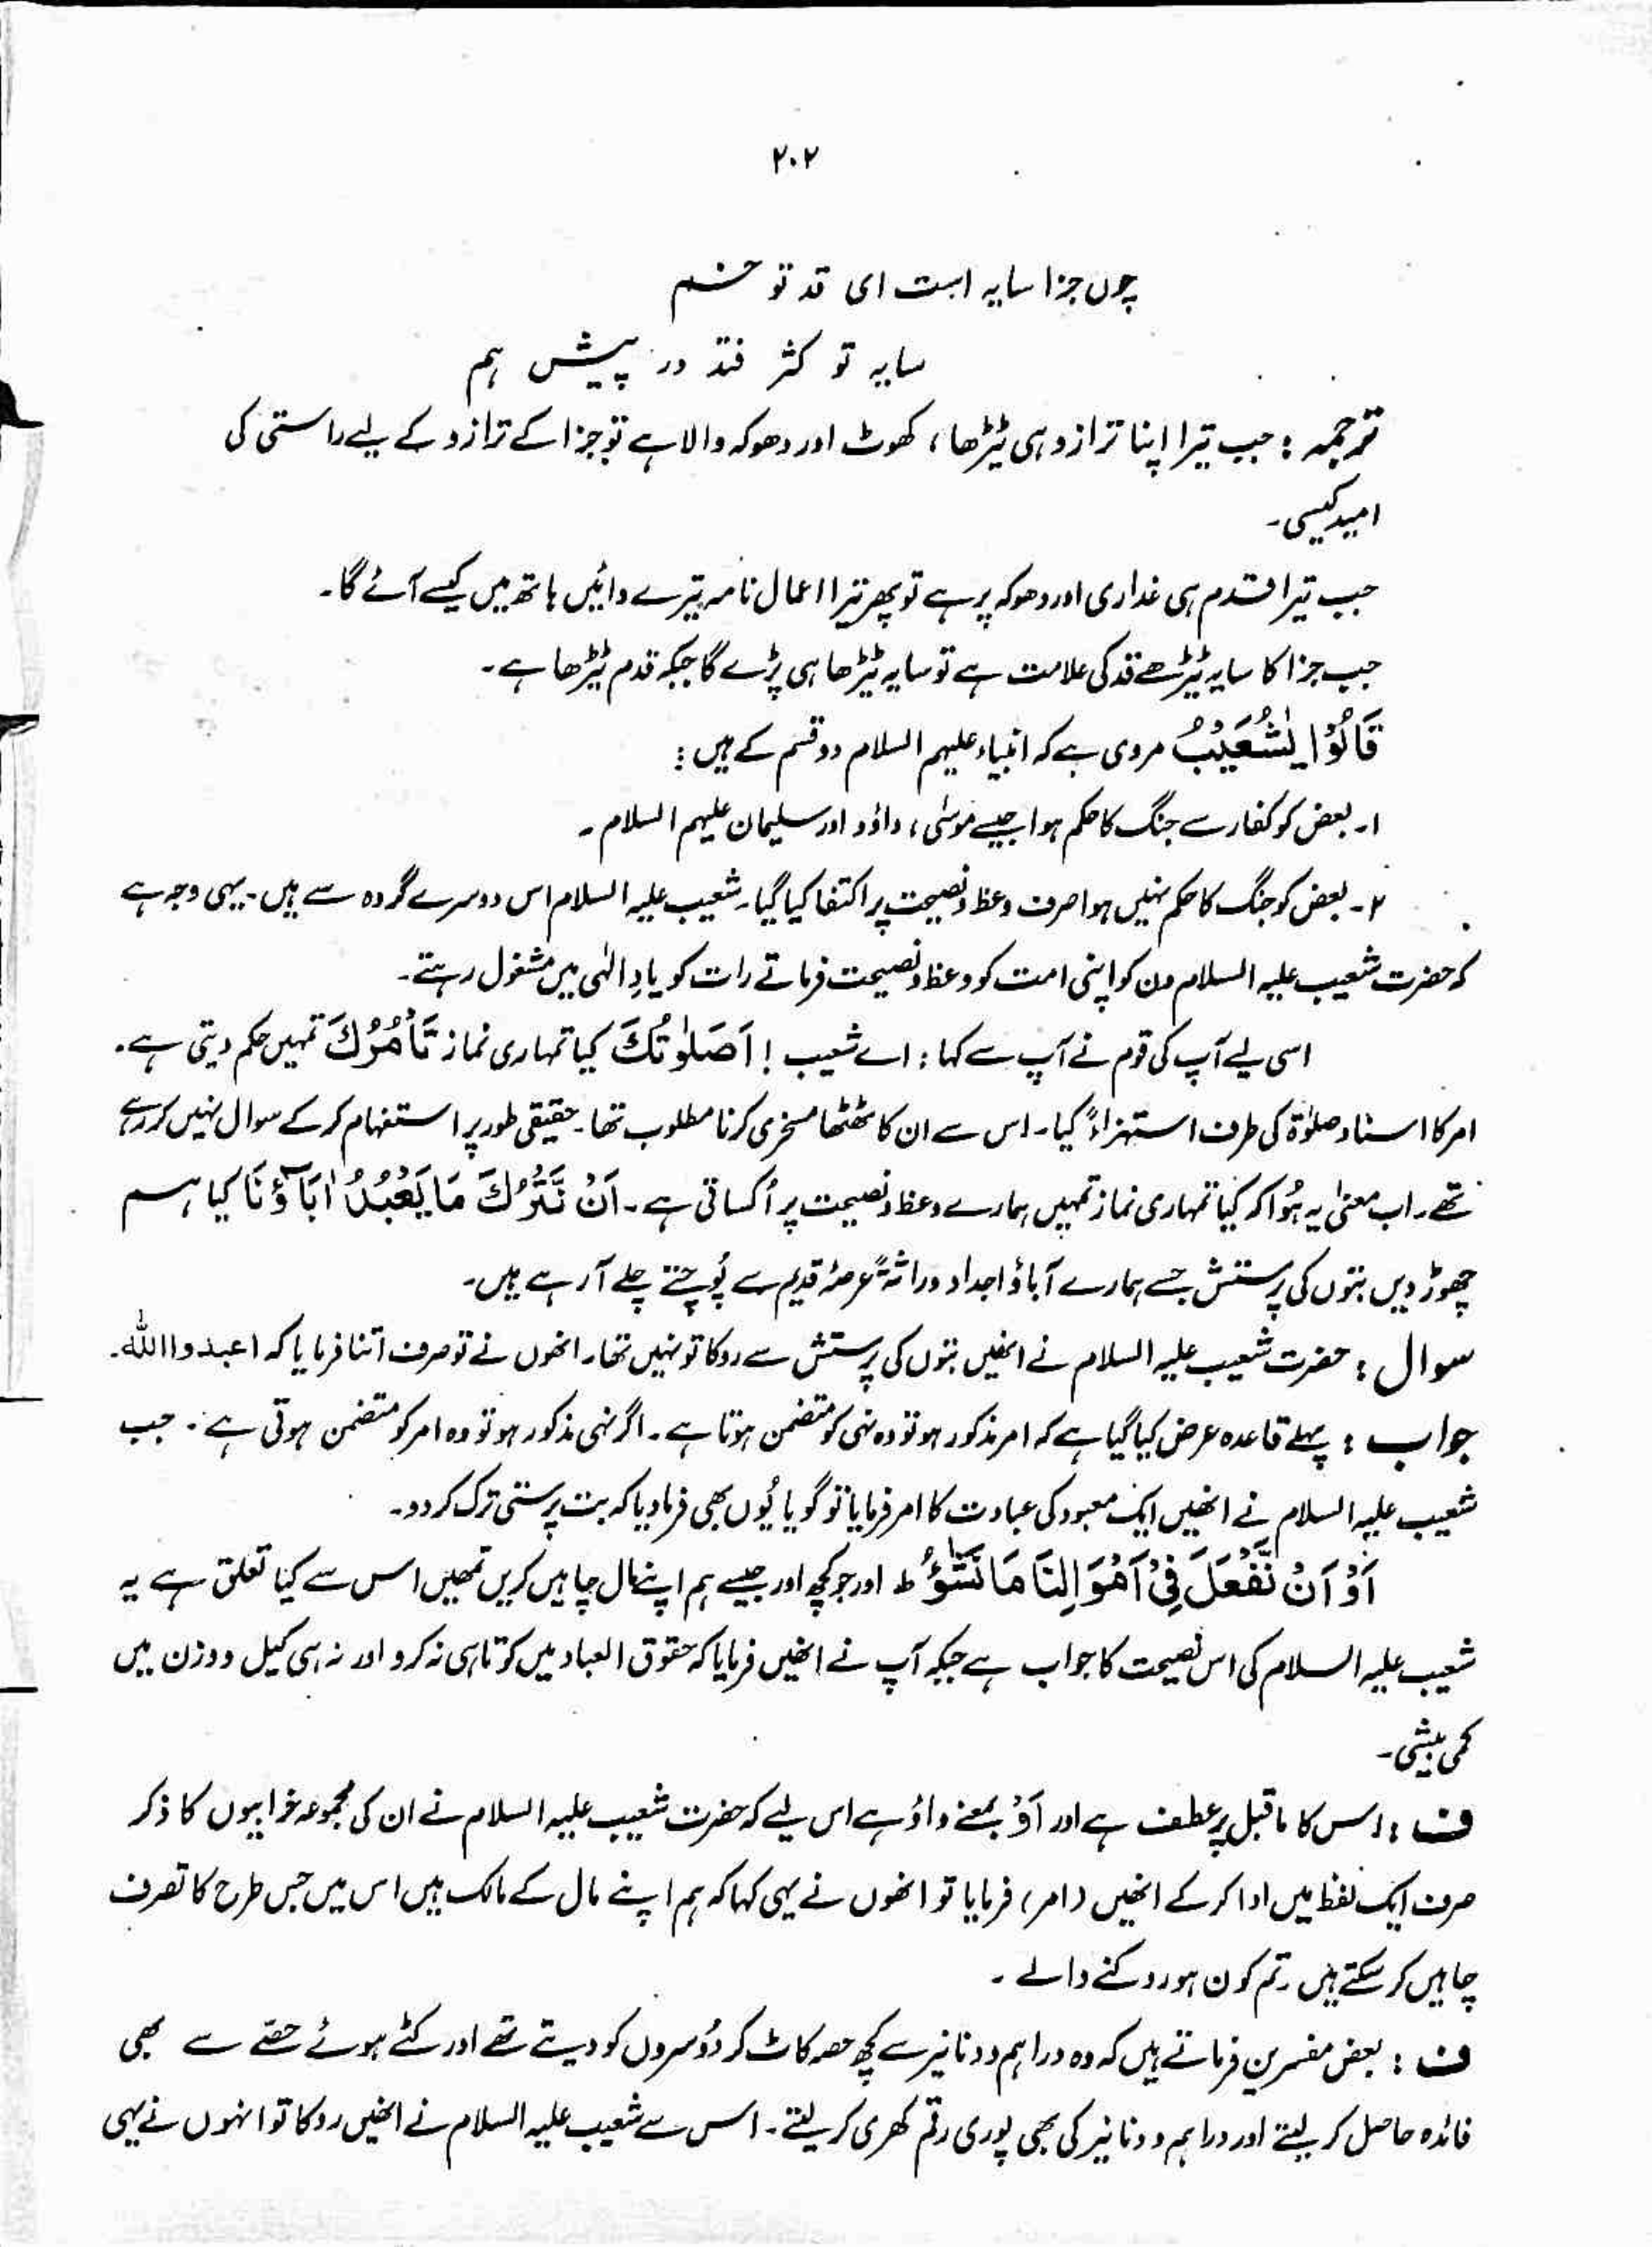 ۲۰۲
چوں جزا سایہ است ای قد تو خم
سایہ تو کژ فتد در پیش ہم
ترجمہ : جب تیرا اپنا ترازو ہی ٹیڑھا ، کھوٹ اور دھوکہ والا ہے تو جزا کے ترازو کے لیے راستی کی
امید کیسی۔
جب تیرا قدم ہی غداری اور دھوکہ پر ہے تو پھر تیرا اعمال نامہ تیرے دائیں ہاتھ میں کیسے آئے گا۔
جب جزا کا سایہ ٹیڑھے قد کی علامت ہے تو سایہ ٹیڑھا ہی پڑے گا جبکہ قدم ٹیڑھا ہے۔
قَالُوْا یٰشُعَیْبُ مروی ہے کہ انبیاء علیہم السلام دو قسم کے ہیں :
۱۔ بعض کو کفار سے جنگ کا حکم ہوا جیسے موسٰی ، داؤد اور سلیمان علیہم السلام ۔
۲۔ بعض کو جنگ کا حکم نہیں ہوا صرف وعظ و نصیحت پر اکتفا کیا گیا۔ شعیب علیہ السلام اس دوسرے گروہ سے ہیں۔ یہی وجہ ہے
کہ حضرت شعیب علیہ السلام دن کو اپنی امت کو وعظ و نصیحت فرماتے رات کو یادِ الٰہی میں مشغول رہتے۔
اسی لیے آپ کی قوم نے آپ سے کہا : اے شعیب ! اَصَلٰوتُكَ کیا تمہاری نماز تَاْمُرُكَ تمہیں حکم دیتی ہے۔
امر کا اسناد صلوٰۃ کی طرف استہزاءً کیا۔ اس سے ان کا ٹھٹھا مسخری کرنا مطلوب تھا۔ حقیقی طور پر استفہام کر کے سوال نہیں کر رہے
تھے۔ اب معنیٰ یہ ہُوا کہ کیا تمہاری نماز تمہیں ہمارے وعظ و نصیحت پر اُکساتی ہے۔ اَنْ نَّتْرُكَ مَا یَعْبُدُ اٰبَآؤُنَا کیا ہم
چھوڑ دیں بتوں کی پرستش جسے ہمارے آباؤ اجداد وراثۃً عرصۂ قدیم سے پُوجتے چلے آ رہے ہیں۔
سوال : حضرت شعیب علیہ السلام نے انھیں بتوں کی پرستش سے روکا تو نہیں تھا۔ انھوں نے تو صرف اتنا فرمایا کہ اعبدوا اللہ۔
جواب : پہلے قاعدہ عرض کیا گیا ہے کہ امر مذکور ہو تو وہ نہی کو متضمن ہوتا ہے۔ اگر نہی مذکور ہو تو وہ امر کو متضمن ہوتی ہے۔ جب
شعیب علیہ السلام نے انھیں ایک معبود کی عبادت کا امر فرمایا تو گویا یُوں بھی فرما دیا کہ بت پرستی ترک کر دو۔
اَوْ اَنْ نَّفْعَلَ فِیْۤ اَمْوَالِنَا مَا نَشٰٓؤُا ط اور جو کچھ اور جیسے ہم اپنے مال چاہیں کریں تمھیں اس سے کیا تعلق ہے یہ
شعیب علیہ السلام کی اس نصیحت کا جواب ہے جبکہ آپ نے انھیں فرمایا کہ حقوق العباد میں کوتاہی نہ کرو اور نہ ہی کیل و وزن میں
کمی بیشی۔
ف : اس کا ماقبل پر عطف ہے اور اَوْ بمعنے واؤ ہے اس لیے کہ حضرت شعیب علیہ السلام نے ان کی مجموعہ خرابیوں کا ذکر
صرف ایک لفظ میں ادا کر کے انھیں (امر) فرمایا تو انھوں نے یہی کہا کہ ہم اپنے مال کے مالک ہیں اس میں جس طرح کا تصرف
چاہیں کر سکتے ہیں۔ تم کون ہو روکنے والے ۔
ف : بعض مفسرین فرماتے ہیں کہ وہ دراہم و دنانیر سے کچھ حصہ کاٹ کر دُوسروں کو دیتے تھے اور کٹے ہوئے حصے سے بھی
فائدہ حاصل کر لیتے اور دراہم و دنانیر کی بھی پوری رقم کھری کر لیتے۔ اس سے شعیب علیہ السلام نے انھیں روکا تو انہوں نے یہی